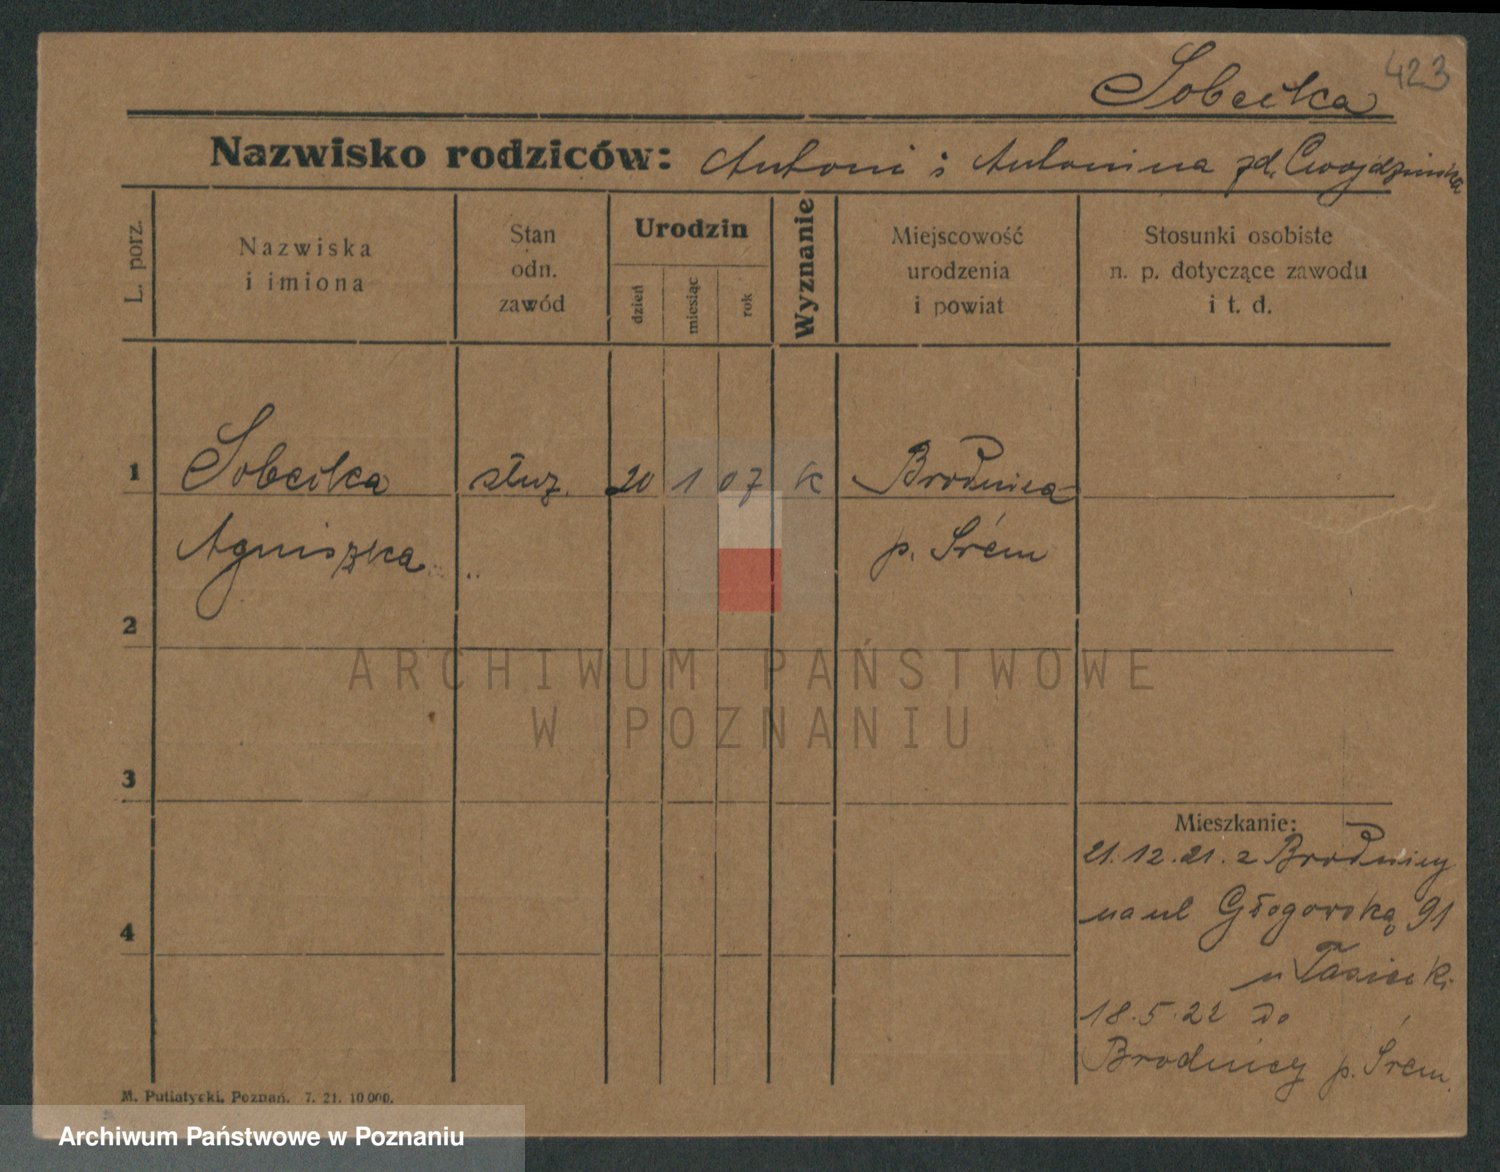 423
Sobecka
Nazwisko rodziców: Antoni i Antonina zd. Cwojdzińska
L. porz.
Nazwiska
i imiona
Stan
odn.
zawód
Urodzin
dzień
miesiąc
rok
Wyznanie
Miejscowość
urodzenia
i powiat
Stosunki osobiste
n. p. dotyczące zawodu
i t. d.
1 Sobecka służ. 20 1 07 k Brodnica
Agniszka p. Śrem
2
3
4
Mieszkanie:
21.12.21. z Brodnicy
na ul Głogowską 91
u
18.5.22 do
Brodnicy p. Śrem
M. Putiatycki, Poznań. 7. 21. 10 000.
ARCHIWUM PAŃSTWOWE
W POZNANIU
Archiwum Państwowe w Poznaniu